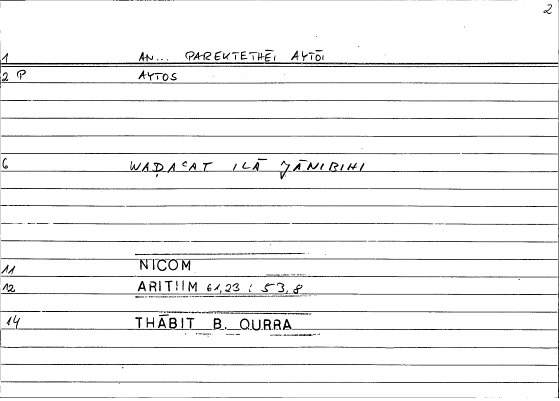 2
1 AN... PAREKTETHĒI AYTŌI
2 P AYTOS
6 WAḌAʿAT ILĀ JĀNIBIHI
11 NICOM
12 ARITHM 61,23 : 53,8
14 THĀBIT B. QURRA